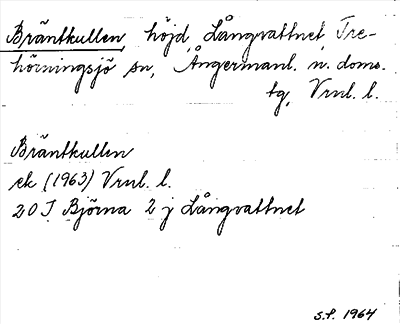 Bräntkullen, höjd, Långvattnet, Tre-
hörningsjö sn, Ångermanl. n. doms.
tg, Vrnl. l.
Bräntkullen
ek (1963) Vrnl. l.
20 I Björna 2 j Långvattnet
S.F. 1964